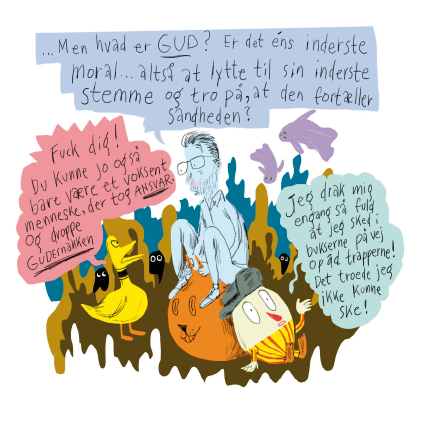 ...Men hvad er GUD? Er det éns inderste
moral... altså at lytte til sin inderste
stemme og tro på, at den fortæller
sandheden?
Fuck dig!
Du kunne jo også
bare være et voksent
menneske, der tog ANSVAR
og droppe
GUDERNAKKEN
Jeg drak mig
engang så fuld
at jeg sked i
bukserne på vej
op ad trapperne!
Det troede jeg
ikke kunne
ske!